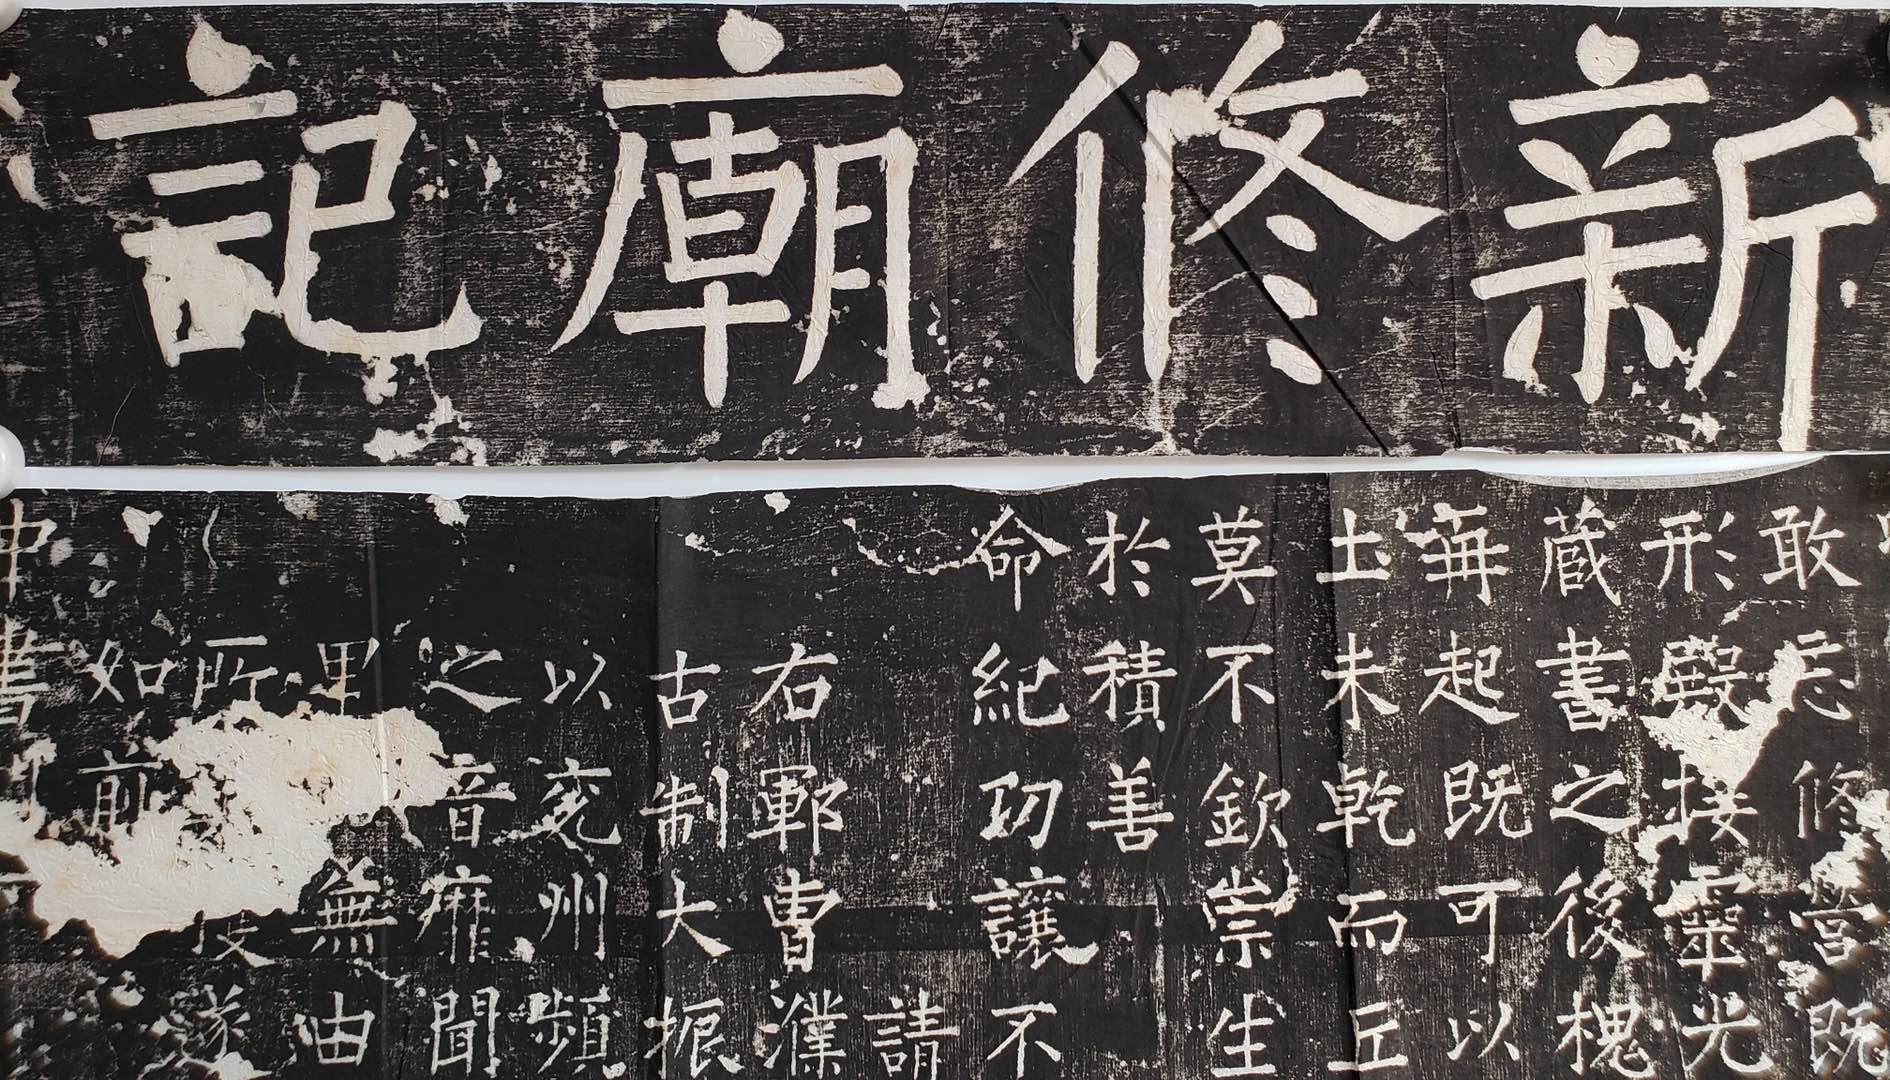 新修廟記
敢忘修營既
形殿接靈光
蔵書之後槐
再起既可以
土未乾而丘
莫不欽崇生
於積善
命紀功讓不
請
右鄆曹濮
古制大振
以兖州頻
之音靡聞
里無由
所遂
如前
中書